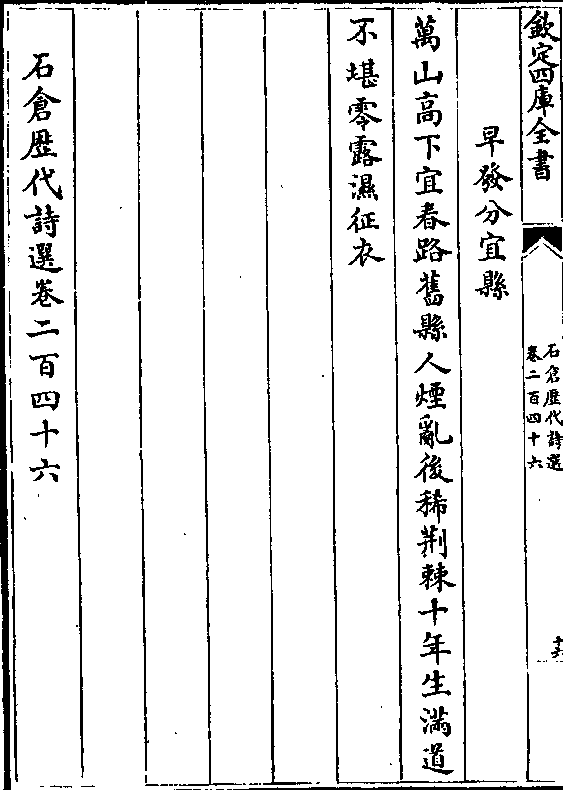 欽定四庫全書
石倉歷代詩選
卷二百四十六
早發分宜縣
萬山高下宜春路舊縣人煙亂後稀荆棘十年生滿道
不堪零露濕征衣
石倉歷代詩選卷二百四十六